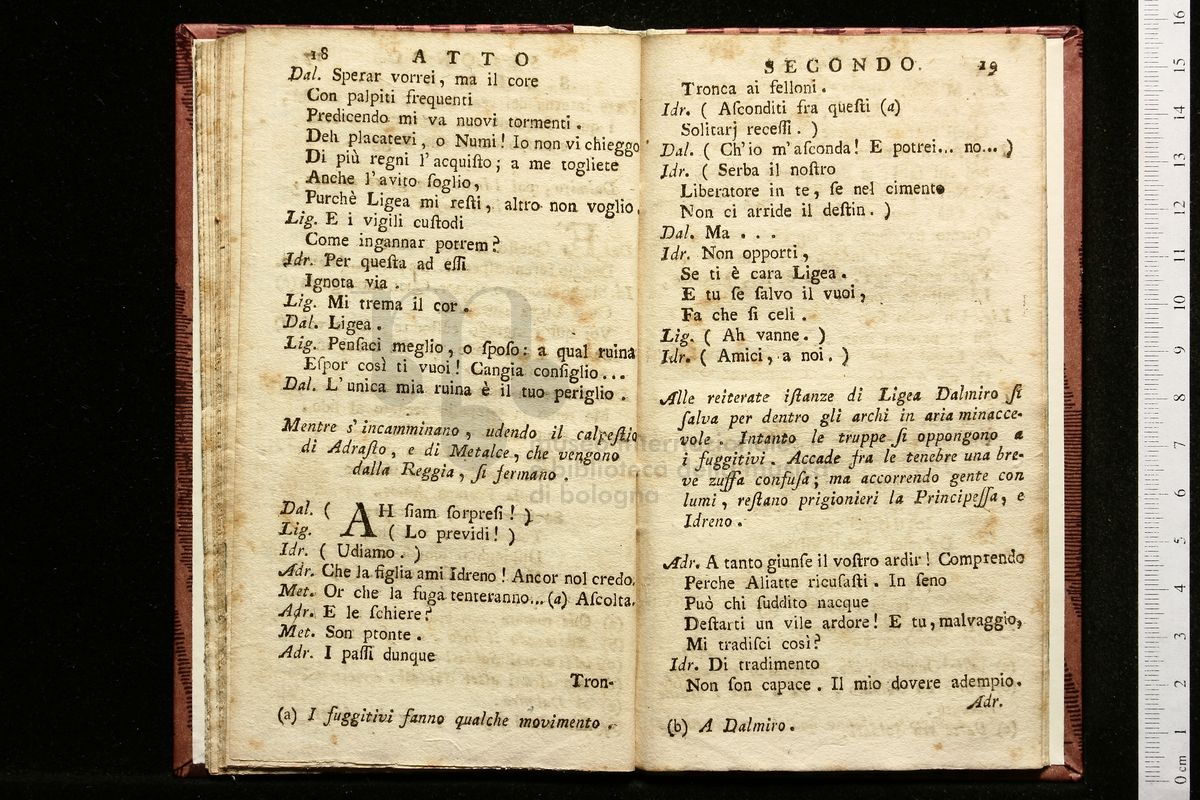 18 ATTO
Dal. Sperar vorrei, ma il core
Con palpiti frequenti
Predicendo mi va nuovi tormenti.
Deh placatevi, o Numi! Io non vi chieggo
Di più regni l'acquiſto; a me togliete
Anche l'avito ſoglio,
Purchè Ligea mi reſti, altro non voglio.
Lig. E i vigili cuſtodi
Come ingannar potrem?
Idr. Per queſta ad eſſi
Ignota via.
Lig. Mi trema il cor.
Dal. Ligea.
Lig. Penſaci meglio, o ſpoſo: a qual ruina
Eſpor così ti vuoi! Cangia conſiglio...
Dal. L'unica mia ruina è il tuo periglio.
Mentre s'incamminano, udendo il calpeſtio
di Adraſto, e di Metalce, che vengono
dalla Reggia, ſi fermano.
Dal. ( AH ſiam ſorpreſi! )
Lig. ( Lo previdi! )
Idr. ( Udiamo. )
Adr. Che la figlia ami Idreno! Ancor nol credo.
Met. Or che la fuga tenteranno... (a) Aſcolta.
Adr. E le ſchiere?
Met. Son ptonte.
Adr. I paſſi dunque
Tron-
(a) I fuggitivi fanno qualche movimento.
SECONDO. 19
Tronca ai felloni.
Idr. ( Aſconditi fra queſti (a)
Solitarj receſſi. )
Dal. ( Ch'io m'aſconda! E potrei... no... )
Idr. ( Serba il noſtro
Liberatore in te, ſe nel cimento
Non ci arride il deſtin. )
Dal. Ma . . .
Idr. Non opporti,
Se ti è cara Ligea.
E tu ſe ſalvo il vuoi,
Fa che ſi celi.
Lig. ( Ah vanne. )
Idr. ( Amici, a noi. )
Alle reiterate iſtanze di Ligea Dalmiro ſi
ſalva per dentro gli archi in aria minacce-
vole. Intanto le truppe ſi oppongono a
i fuggitivi. Accade fra le tenebre una bre-
ve zuffa confuſa; ma accorrendo gente con
lumi, reſtano prigionieri la Principeſſa, e
Idreno.
Adr. A tanto giunſe il voſtro ardir! Comprendo
Perche Aliatte ricuſaſti. In ſeno
Può chi ſuddito nacque
Deſtarti un vile ardore! E tu, malvaggio,
Mi tradiſci così?
Idr. Di tradimento
Non ſon capace. Il mio dovere adempio.
Adr.
(b) A Dalmiro.
di bologna
0 cm 1 2 3 4 5 6 7 8 9 10 11 12 13 14 15 16